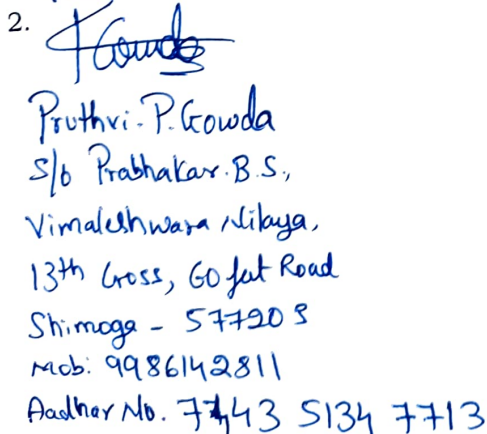 2.
Gowda
Pruthvi. P. Gowda
S/o Prabhakar. B.S.,
Vimaleshwara Nilaya,
13th Cross, 60 fut Road
Shimoga - 577203
Mob: 9986142811
Aadhar No. 7743 5134 7713